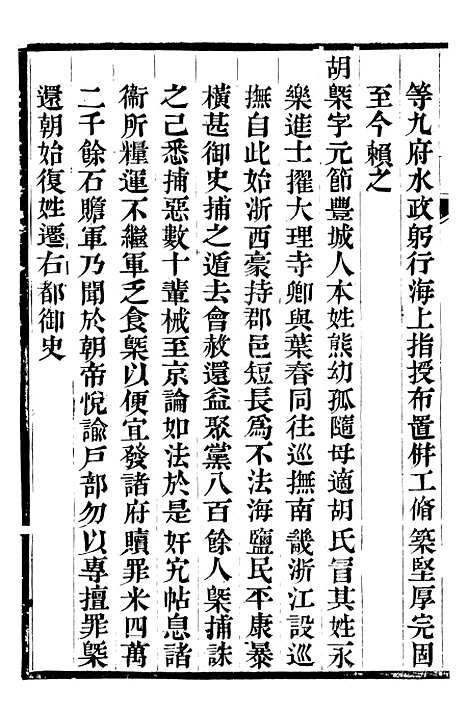 等九府水政躬行海上指授布置倂工脩築堅厚完固
至今賴之
胡槩字元節豐城人本姓熊幼孤隨母適胡氏冒其姓永
樂進士擢大理寺卿與葉春同往巡撫南畿浙江設巡
撫自此始浙西豪持郡邑短長爲不法海鹽民平康暴
橫甚御史捕之遁去會赦還益聚黨八百餘人槩捕誅
之已悉捕惡數十輩械至京論如法於是奸宄帖息諸
衞所糧運不繼軍乏食槩以便宜發諸府贖罪米四萬
二千餘石贍軍乃聞於朝帝悅諭戸部勿以專擅罪槩
還朝始復姓遷右都御史